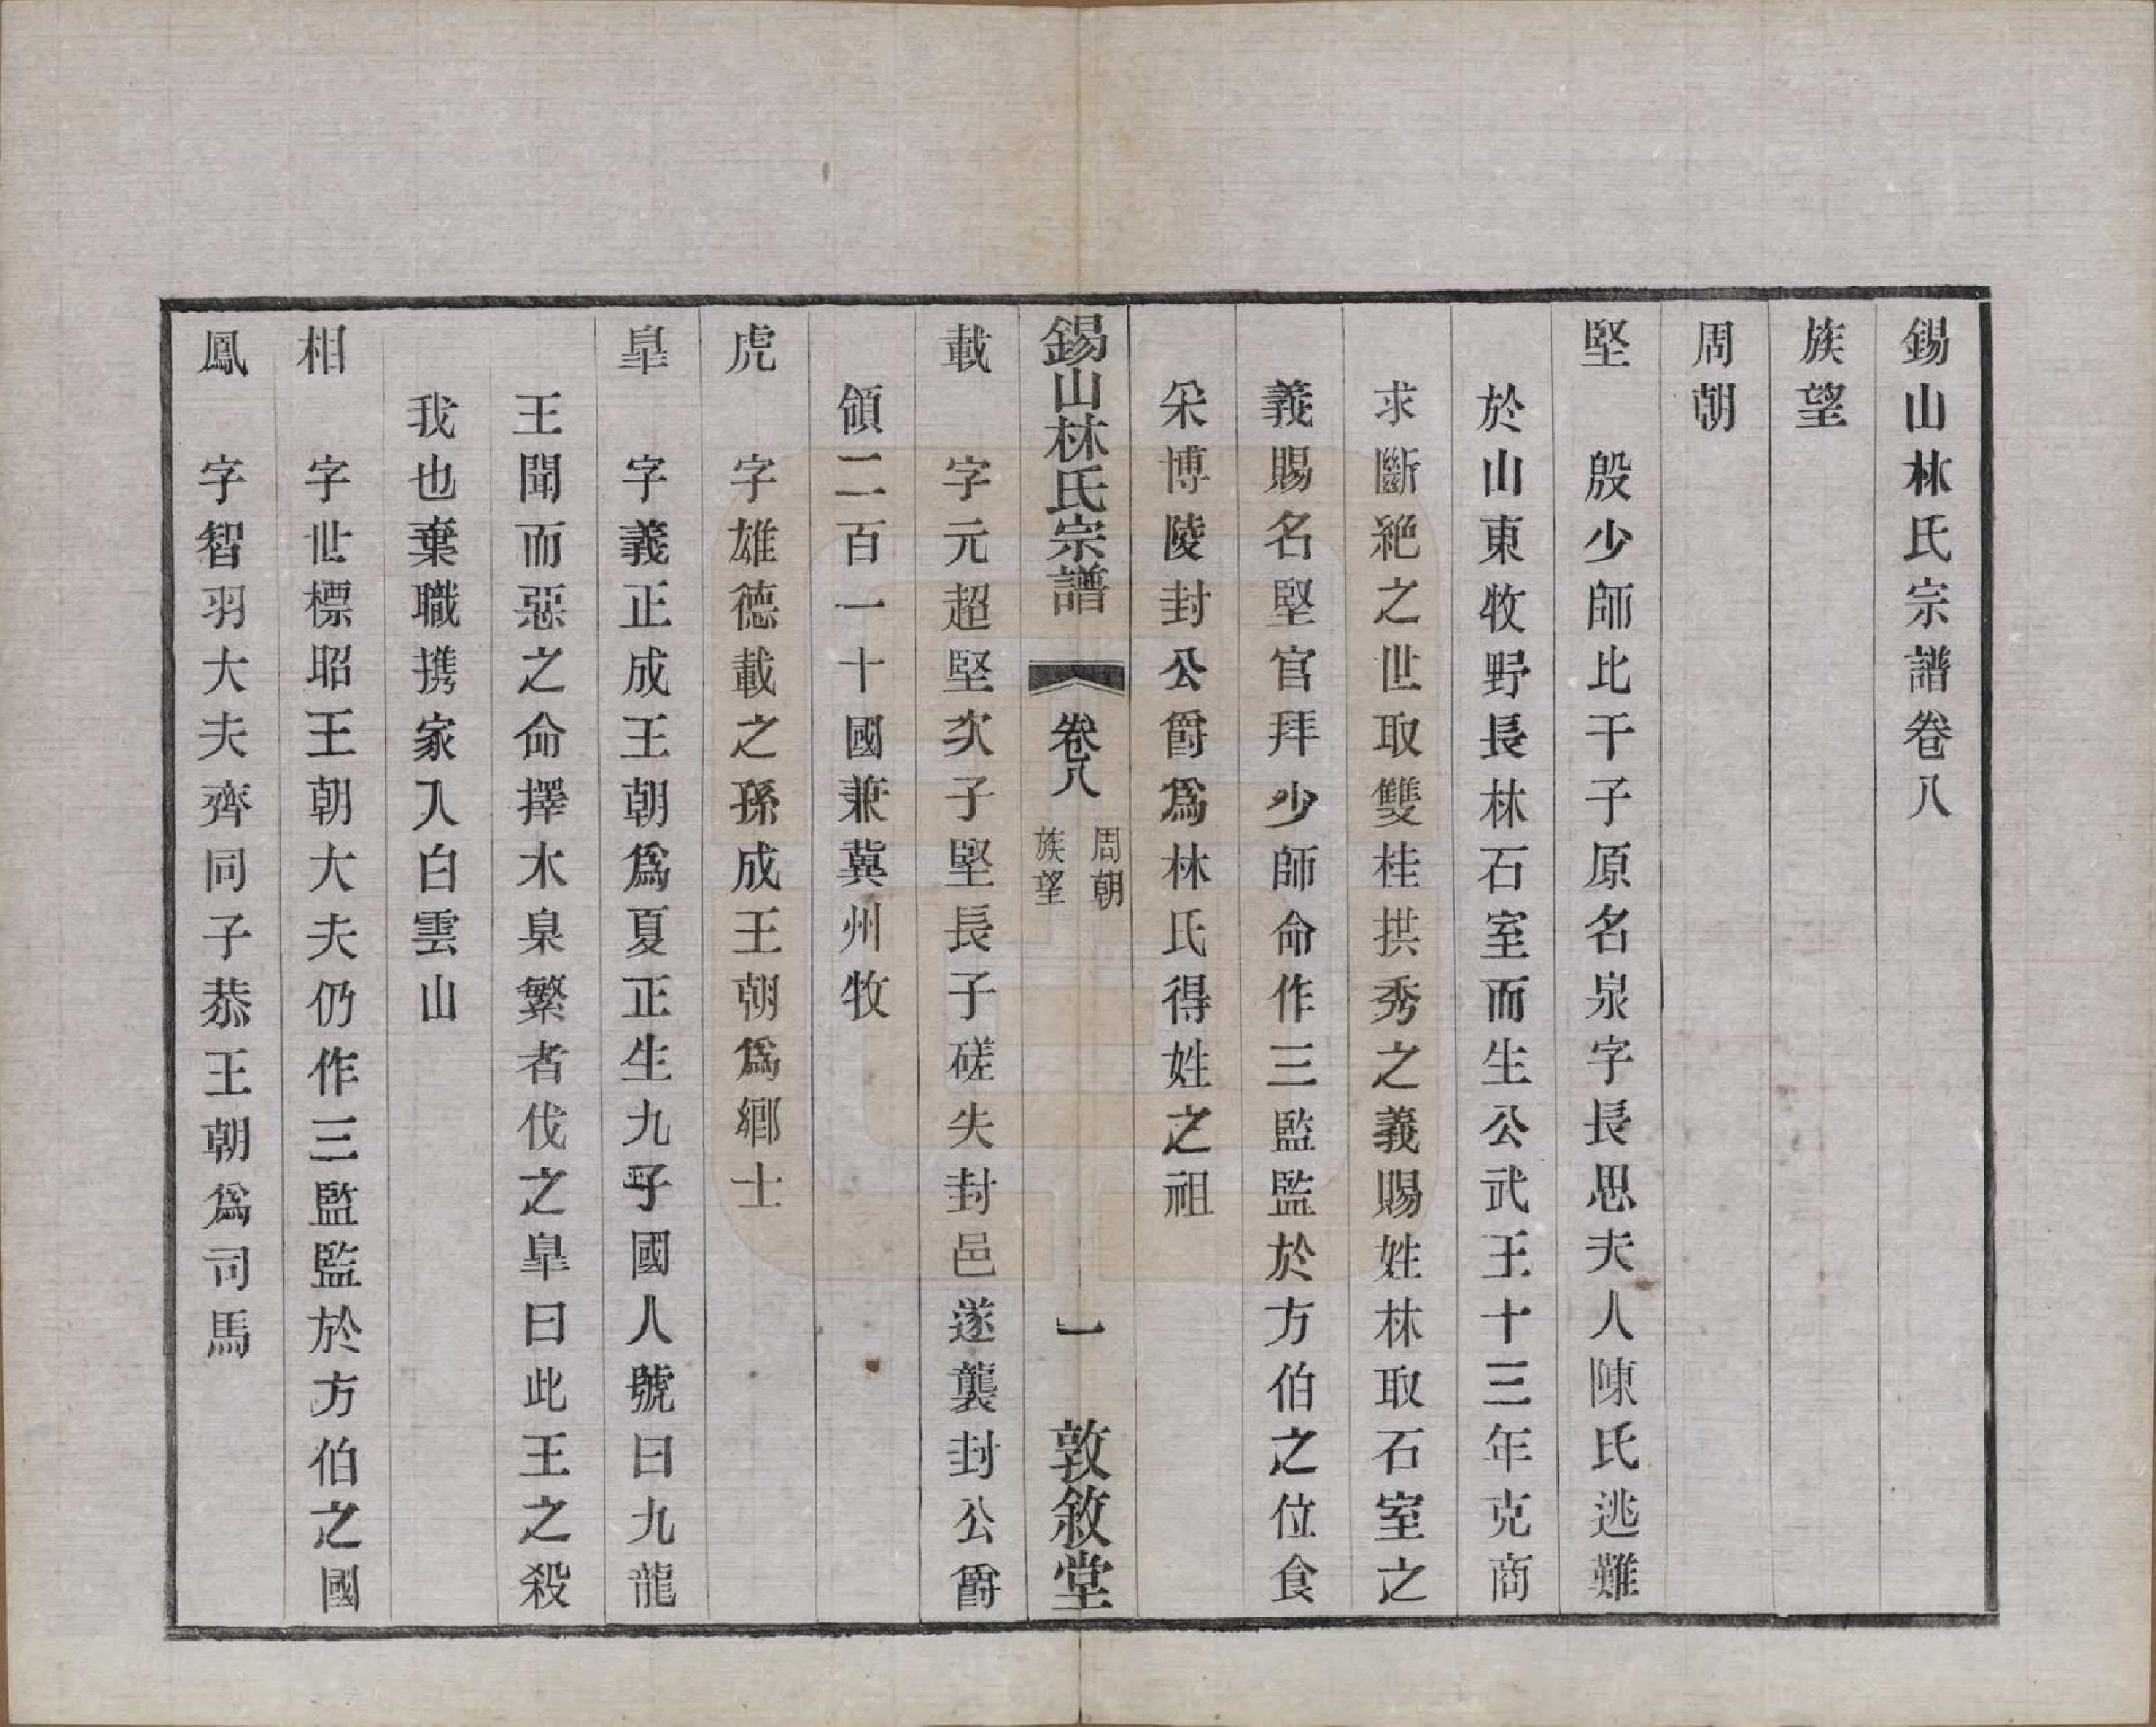 錫山林氏宗譜卷八
族望
周朝
堅　殷少師比干子原名泉字長思夫人陳氏逃難
於山東牧野長林石室而生公武王十三年克商
求斷絕之世取雙桂拱秀之義賜姓林取石室之
義賜名堅官拜少師命作三監監於方伯之位食
采博陵封公爵爲林氏得姓之祖
錫山林氏宗譜　卷八　周朝　族望　一　敦敘堂
載　字元超堅次子堅長子磋失封邑遂襲封公爵
領二百一十國兼冀州牧
虎　字雄德載之孫成王朝爲鄉士
臯　字義正成王朝爲夏正生九子國人號曰九龍
王聞而惡之命擇木臬繁者伐之臯曰此王之殺
我也棄職携家入白雲山
相　字世標昭王朝大夫仍作三監監於方伯之國
鳳　字智羽大夫齊同子恭王朝爲司馬